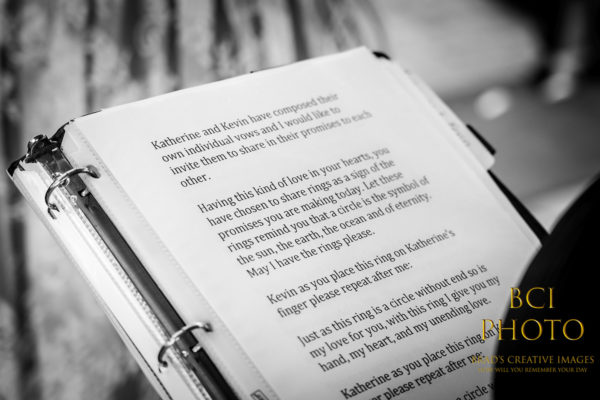 Katherine and Kevin have composed their
own individual vows and I would like to
invite them to share in their promises to each
other.
Having this kind of love in your hearts, you
have chosen to share rings as a sign of the
promises you are making today. Let these
rings remind you that a circle is the symbol of
the sun, the earth, the ocean and of eternity.
May I have the rings please.
Kevin as you place this ring on Katherine's
finger please repeat after me:
Just as this ring is a circle without end so is
my love for you, with this ring I give you my
hand, my heart, and my unending love.
Katherine as you place this ring
finger please repeat after
Just as this ring is a circle
BCI
PHOTO
CREATIVE IMAGES
WELL YOU REMEMBER YOUR DAY